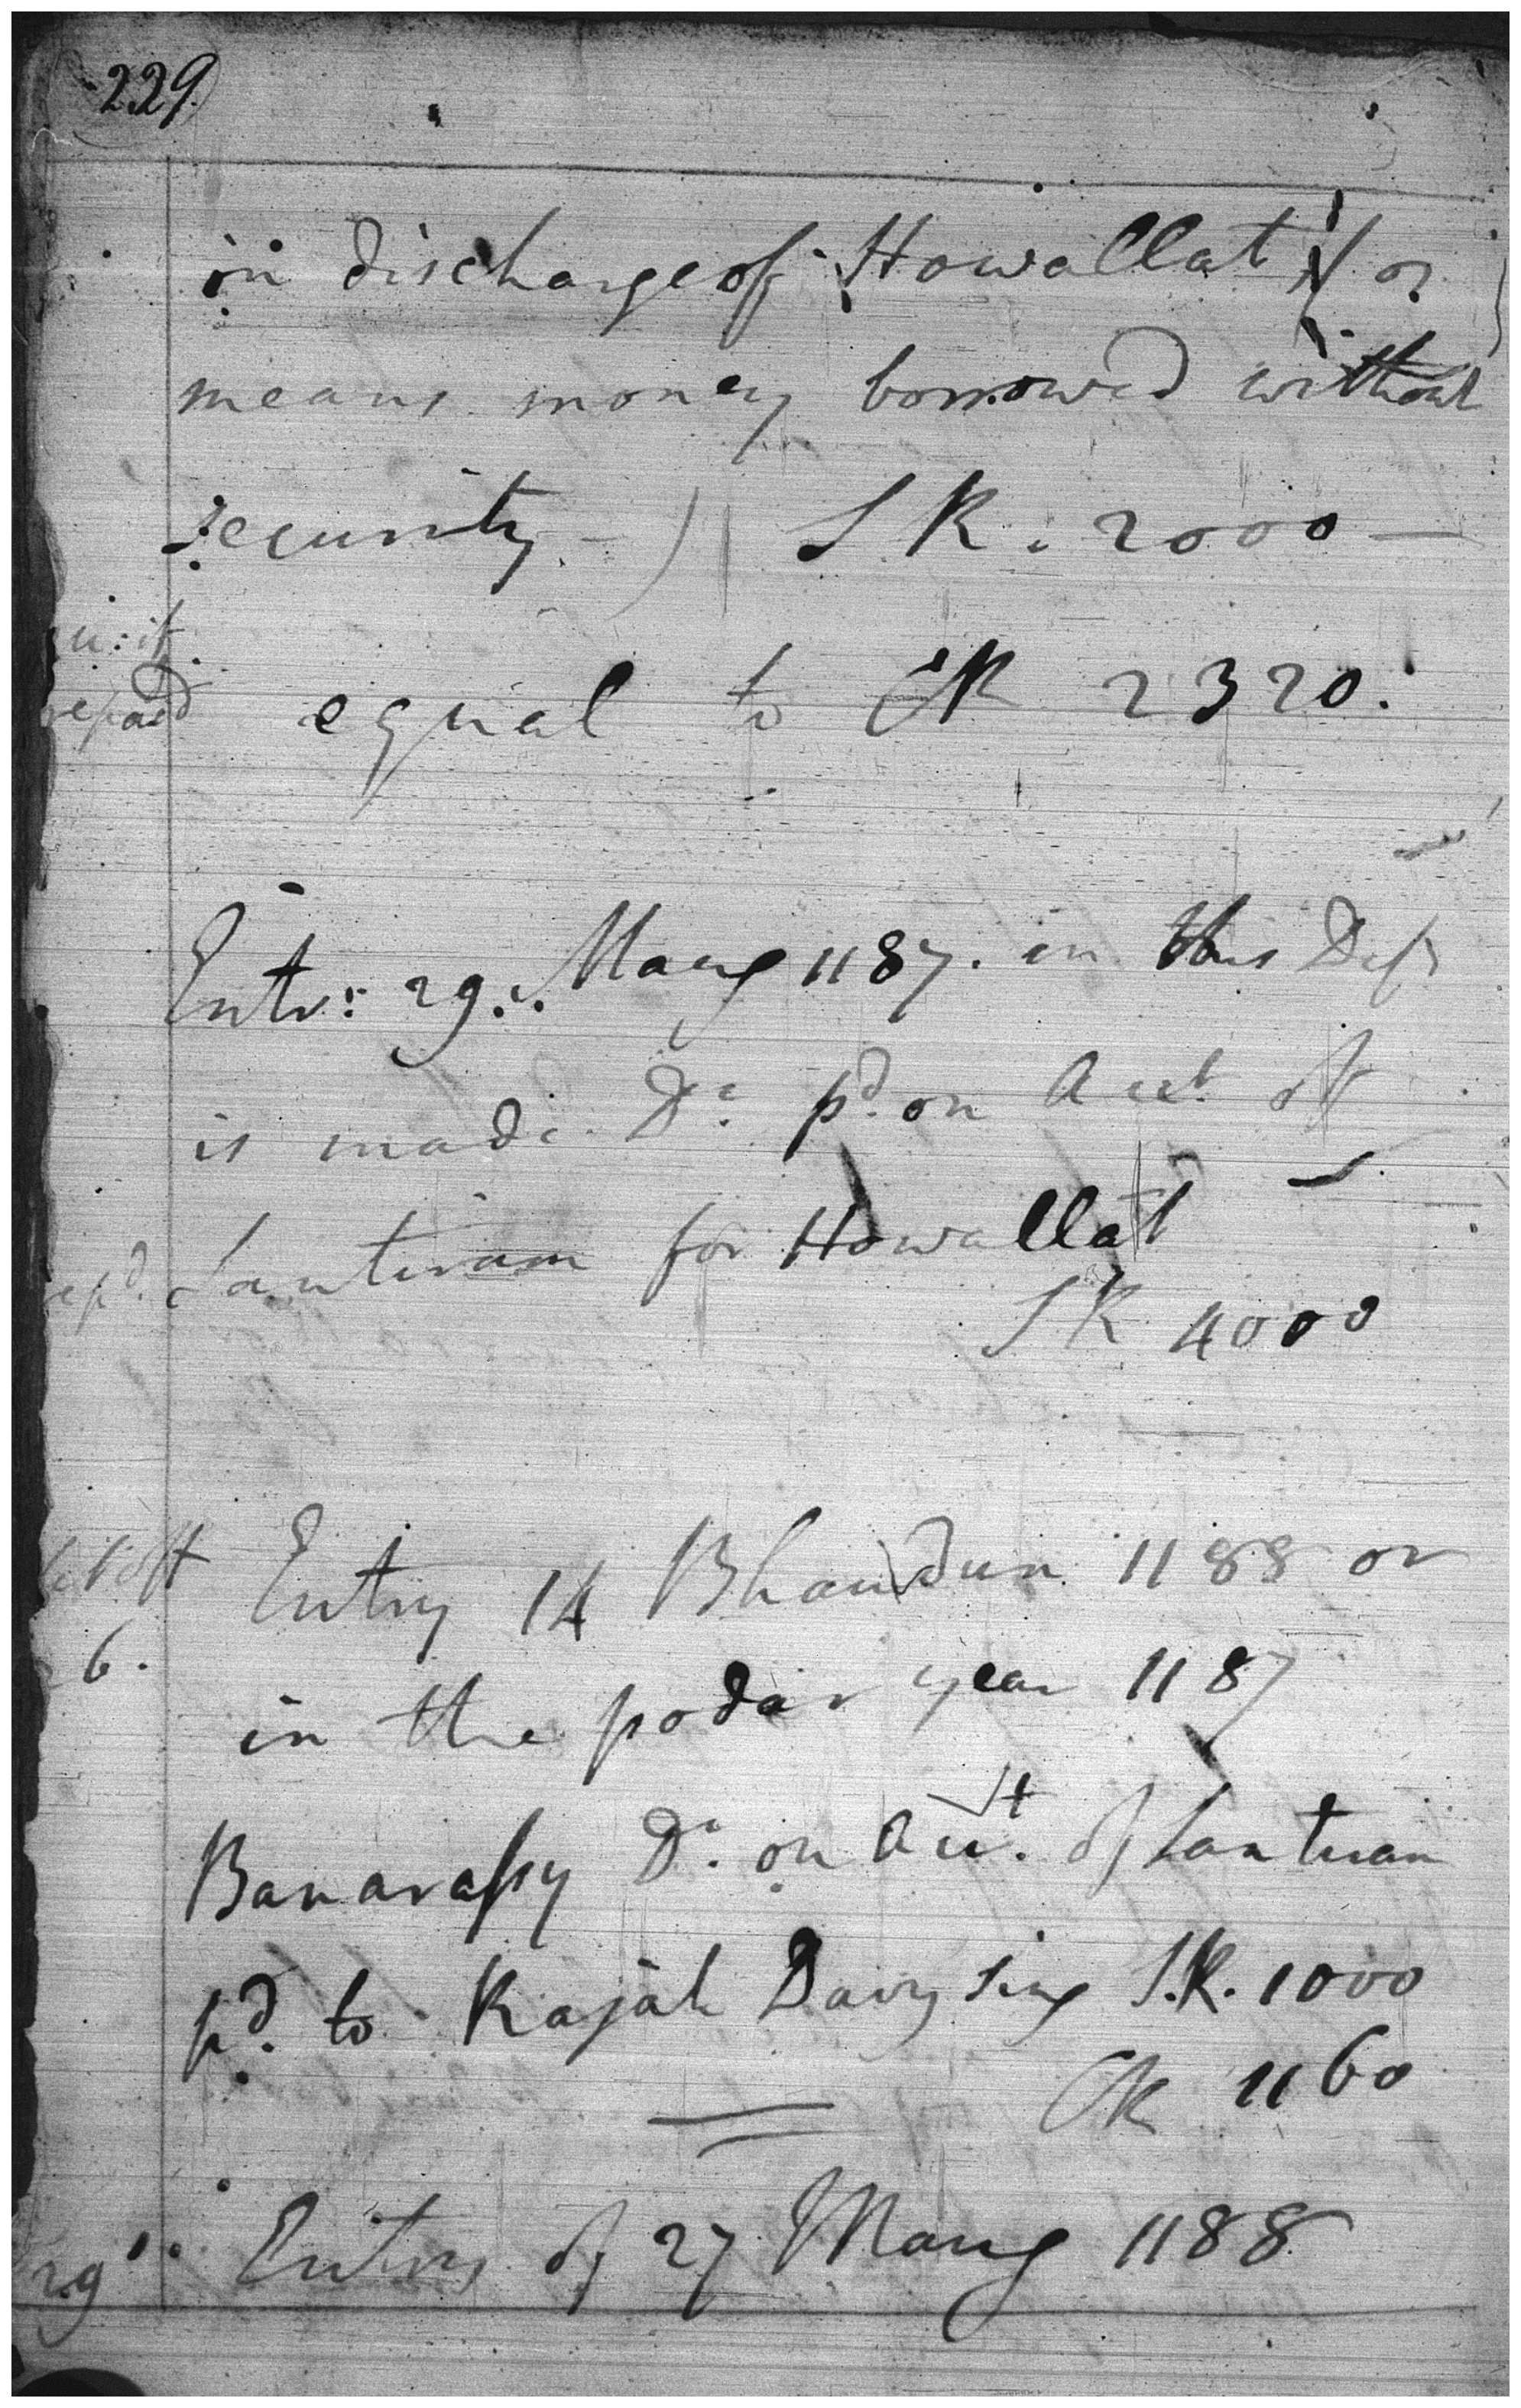 229.
in discharge of Howallat (or
means money borrowed without
security - ) S R. 2000 —
repaid
equal to CR 2320.
Entr: 29. Maug 1187. in this Def
is made Dr. pd. on Acct. of
Santiram for Howallat
S R 4000
Entry 14 Bhaudun 1188 or
6.
in the podar year 1187
Banarassy Dr. on Acct. of Santiram
pd. to Rajah Davy Sing S.R. 1000
CR 1160
29
Entry of 27 Maug 1188